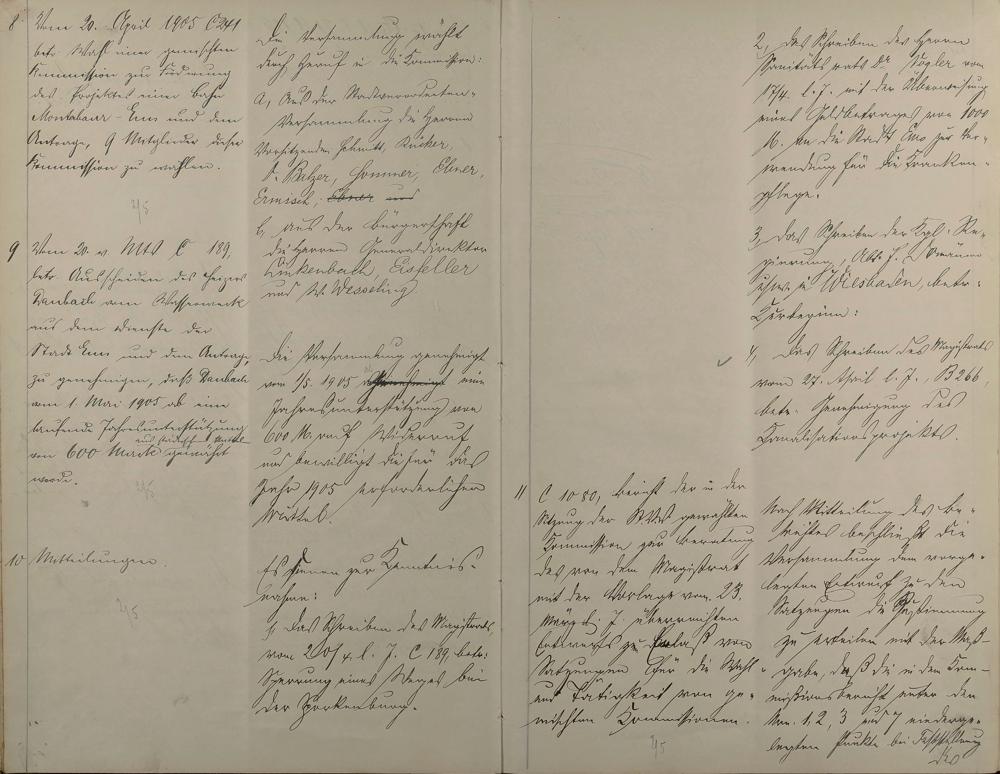 8 Vom 20. April 1905 C 241
betr. Wahl einer gemischten
Kommission zur Förderung
des Projektes einer Bahn
Montabaur - Ems und dem
Antrage, 9 Mitglieder dieser
Kommission zu wählen.
2/5
Die Versammlung wählt
durch Zuruf in die Commission:
a, Aus der Stadtverordneten-
Versammlung die Herren
Vorsitzenden Schmitt, Rücker,
Balzer, Sommer, Ebner,
Ermisch, Ebner und
b, aus der Bürgerschaft
die Herren Generaldirektor
Linkenbach, Eisfeller
und W. Wesseling.
9 Vom 20. v. Mts C 189,
betr. Ausscheiden des Heizers
Danbach vom Wasserwerk
aus dem Dienste der
Stadt Ems und dem Antrage,
zu genehmigen, daß Danbach
vom 1. Mai 1905 ab eine
laufende Jahresunterstützung
aus städt. Mitteln
von 600 Mark gewährt
werde.
2/5
Die Versammlung genehmigt
vom 1/5. 1905 eine
Jahresunterstützung von
600 M. auf Widerruf
und bewilligt die für das
Jahr 1905 erforderlichen
Mittel.
10 Mitteilungen.
2/5
Es kamen zur Kenntnis-
nahme:
1, Das Schreiben des Magistrats
vom 20/4. l. J. C 189, betr:
Sperrung eines Weges bei
der Sporkenburg.
2, Das Schreiben des Herrn
Sanitätsrats Dr. Vogler vom
17/4. l. J. mit der Überweisung
eines Geldbetrages von 1000
M. an die Stadt Ems zur Ver-
wendung für die Kranken-
pflege.
3, Das Schreiben der Kgl. Re-
gierung, Abt. f. Domänen
in Wiesbaden, betr.
Kurtaxen:
4, Das Schreiben des Magistrats
vom 27. April l. J., B 266,
betr. Genehmigung des
Kanalisationsprojekts.
11 C 1080, Bericht der in der
Sitzung der StVV gewählten
Commission zur Beratung
des von dem Magistrat
mit der Vorlage vom 23.
März l. J. überreichten
Entwurfs zu Erlaß von
Satzungen für die Wahl
und Tätigkeit von ge-
mischten Commissionen.
2/5
Nach Mitteilung des Be-
richtes beschließt die
Versammlung dem vorge-
legten Entwurf zu den
Satzungen die Zustimmung
zu erteilen mit der Maß-
gabe, daß die in dem Com-
missionsbericht unter den
Nrn. 1, 2, 3 und 7 niederge-
legten Punkte bei Feststellung